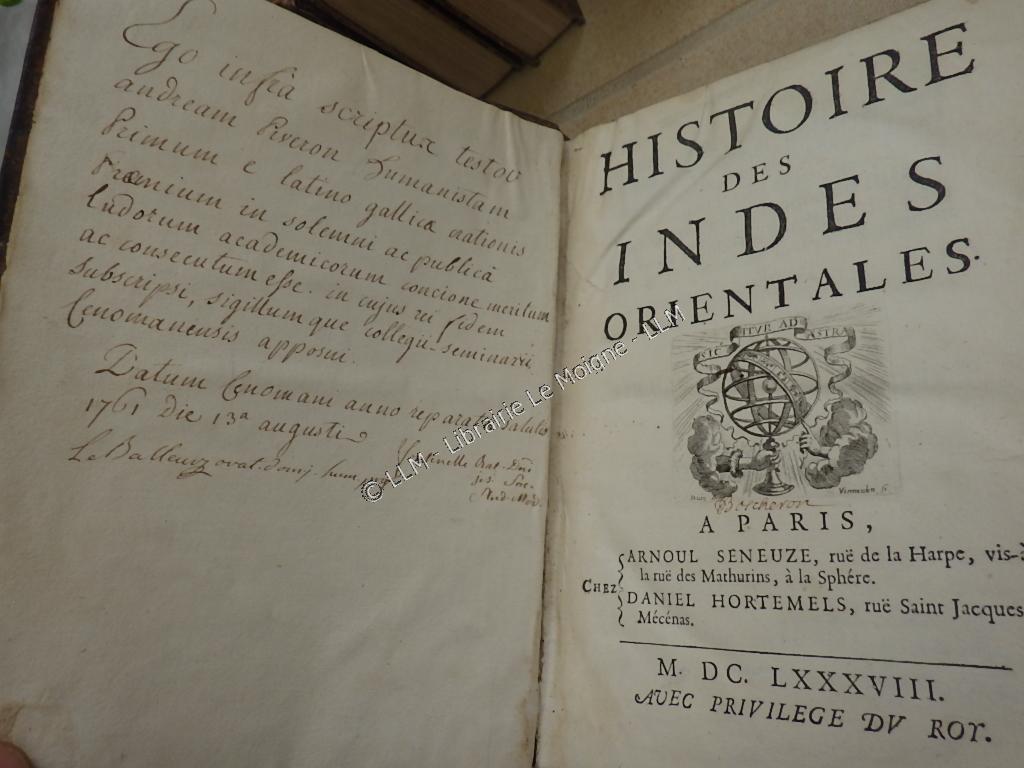 Ego infra scriptus testor
andream Piveron humanistam
Primum e latino gallicæ orationis
Præmium in solemni ac publicâ
ludorum academicorum concione meritum
ac consecutum esse. in cujus rei fidem
Subscripsi, sigillum que collegii-seminarii
Cenomanensis apposui.
Datum Cenomani anno reparatæ salutis
1761 die 13ª augusti
HISTOIRE
DES
INDES
ORIENTALES.
SIC ITUR AD ASTRA
Vermeulen f.
A PARIS,
CHEZ
ARNOUL SENEUZE, ruë de la Harpe, vis-à
la ruë des Mathurins, à la Sphére.
DANIEL HORTEMELS, ruë Saint Jacques
Mécénas.
M. DC. LXXXVIII.
AVEC PRIVILEGE DV ROY.
© LLM - Librairie Le Moigne - LLM